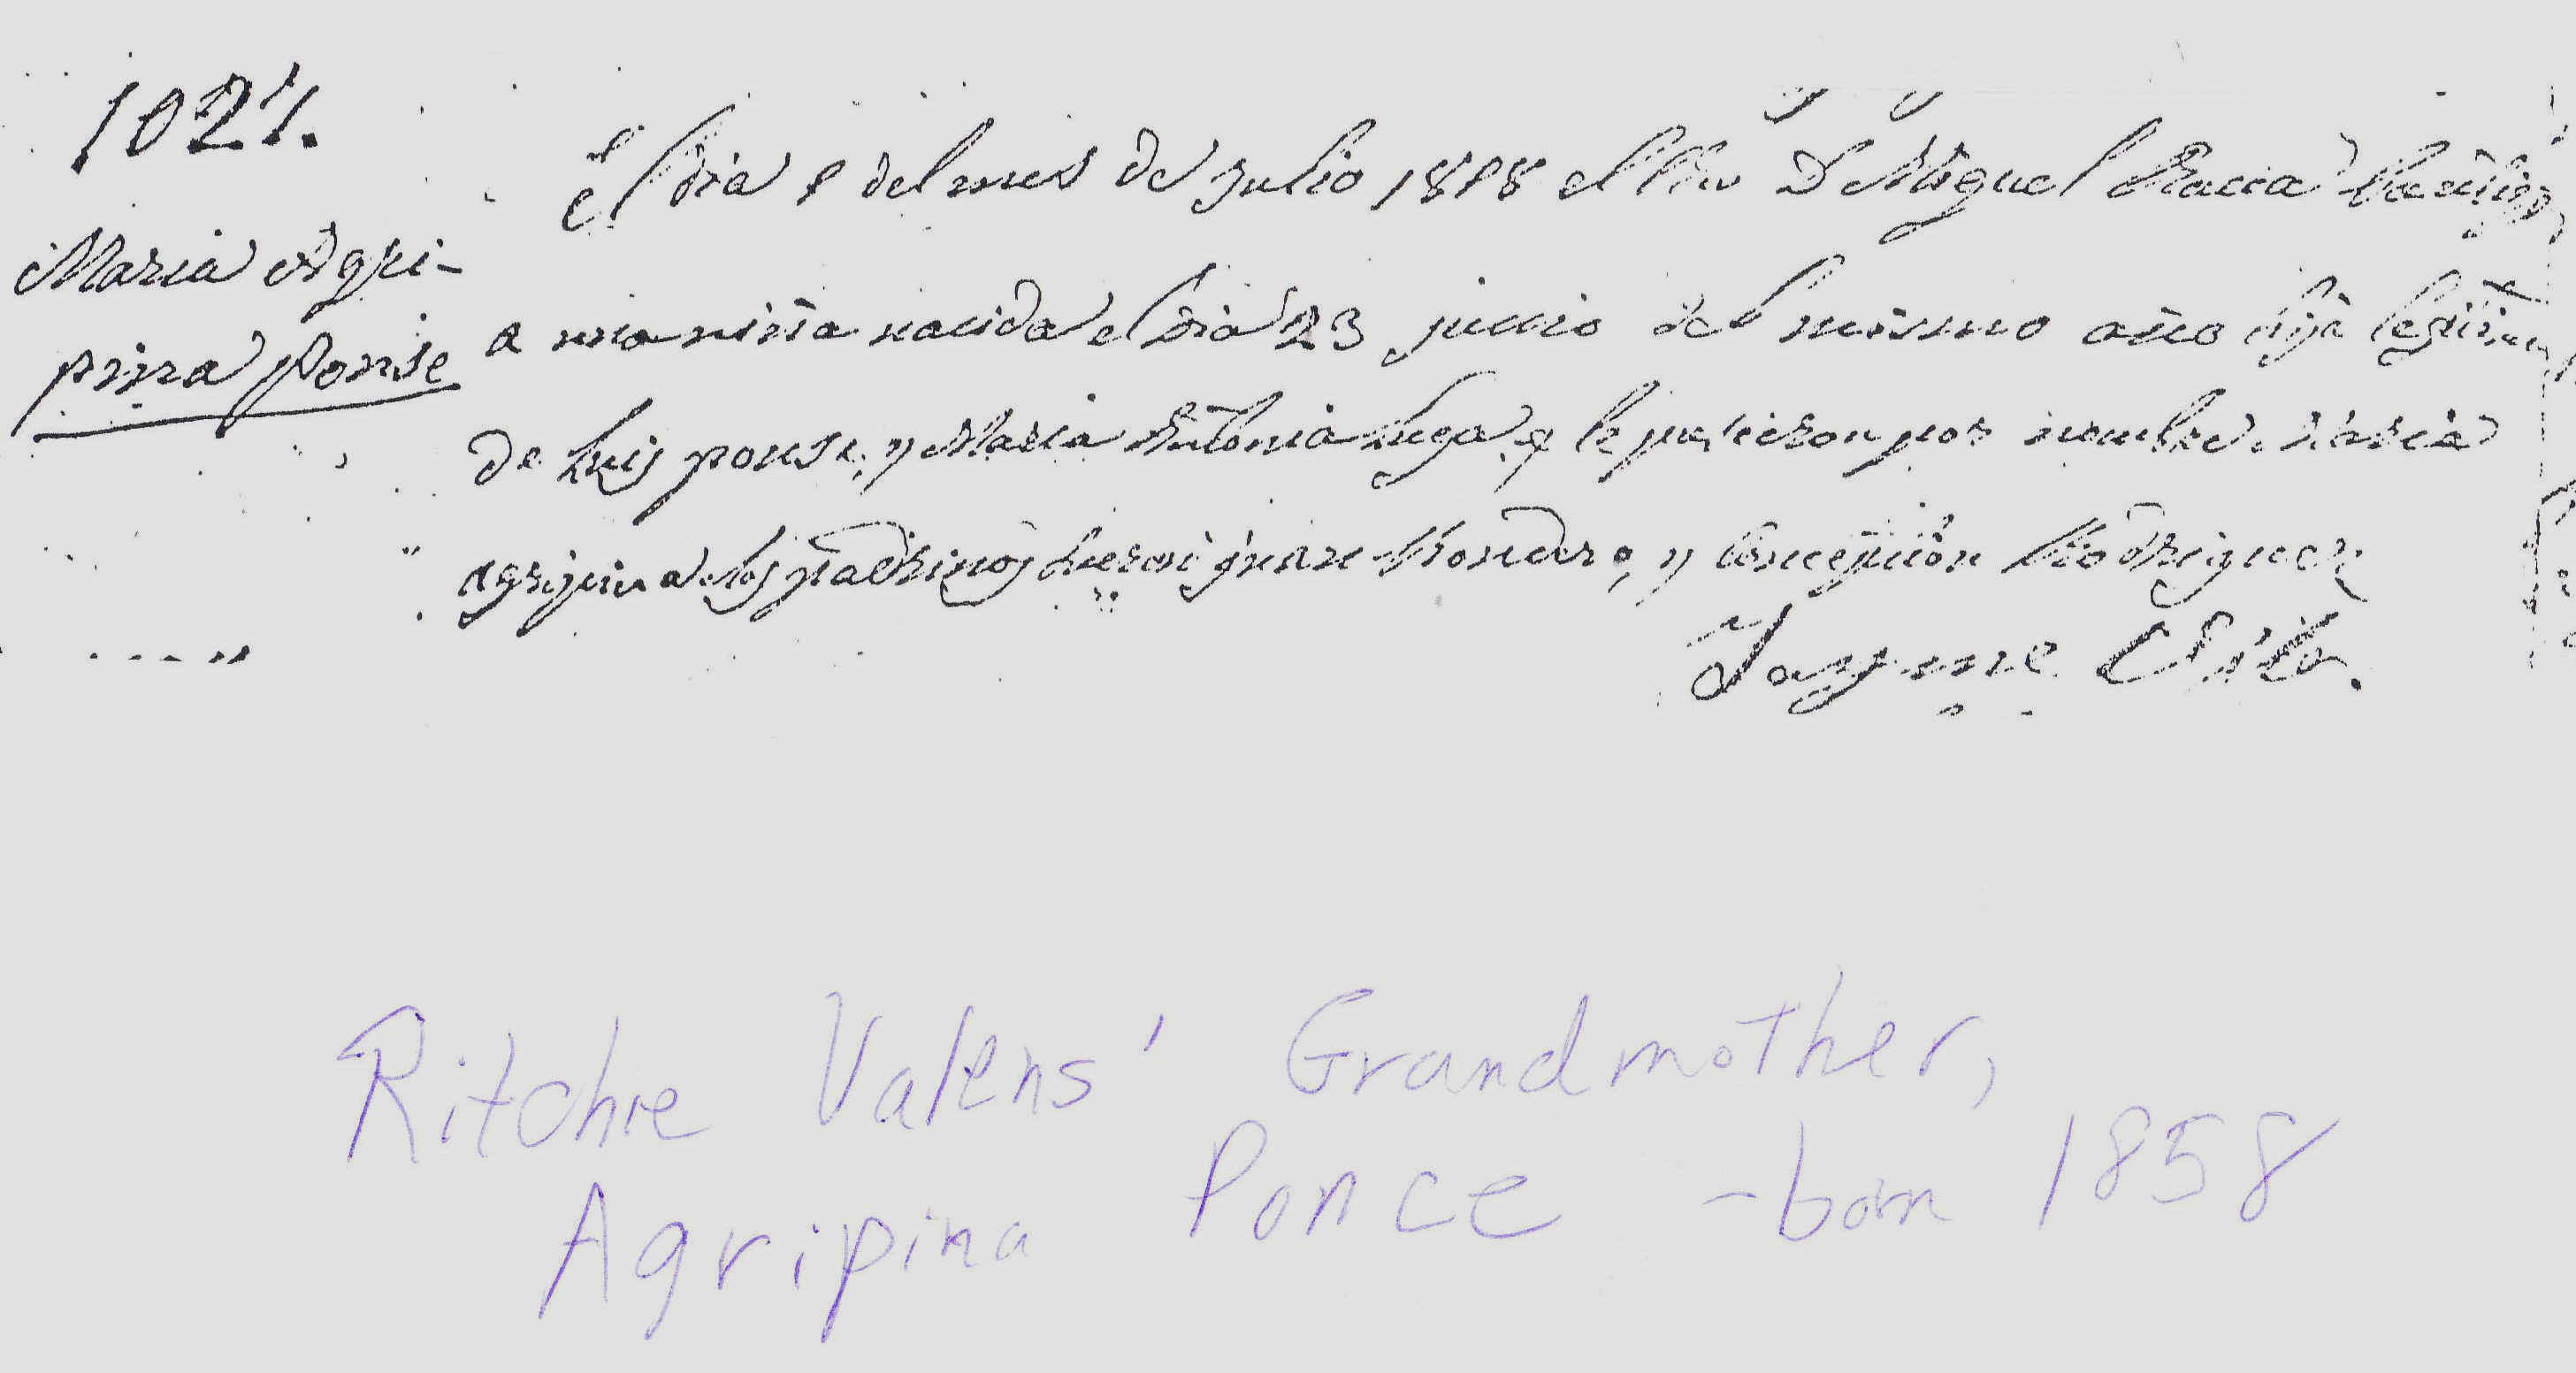 1021.
Maria Agri-
pina Ponse
El dia 8 del mes de Julio 1858 el Pbro D Miguel Racca bautizo
a una niña nacida el dia 23 junio del mismo año hija legitima
de Luis ponse, y Maria Antonia Luga, q le pusieron por nombre Maria
agripina los padrinos fueron juan Rondero, y Concepcion Rodriguez
Jayme Vila.
Ritchie Valens' Grandmother,
Agripina Ponce - born 1858